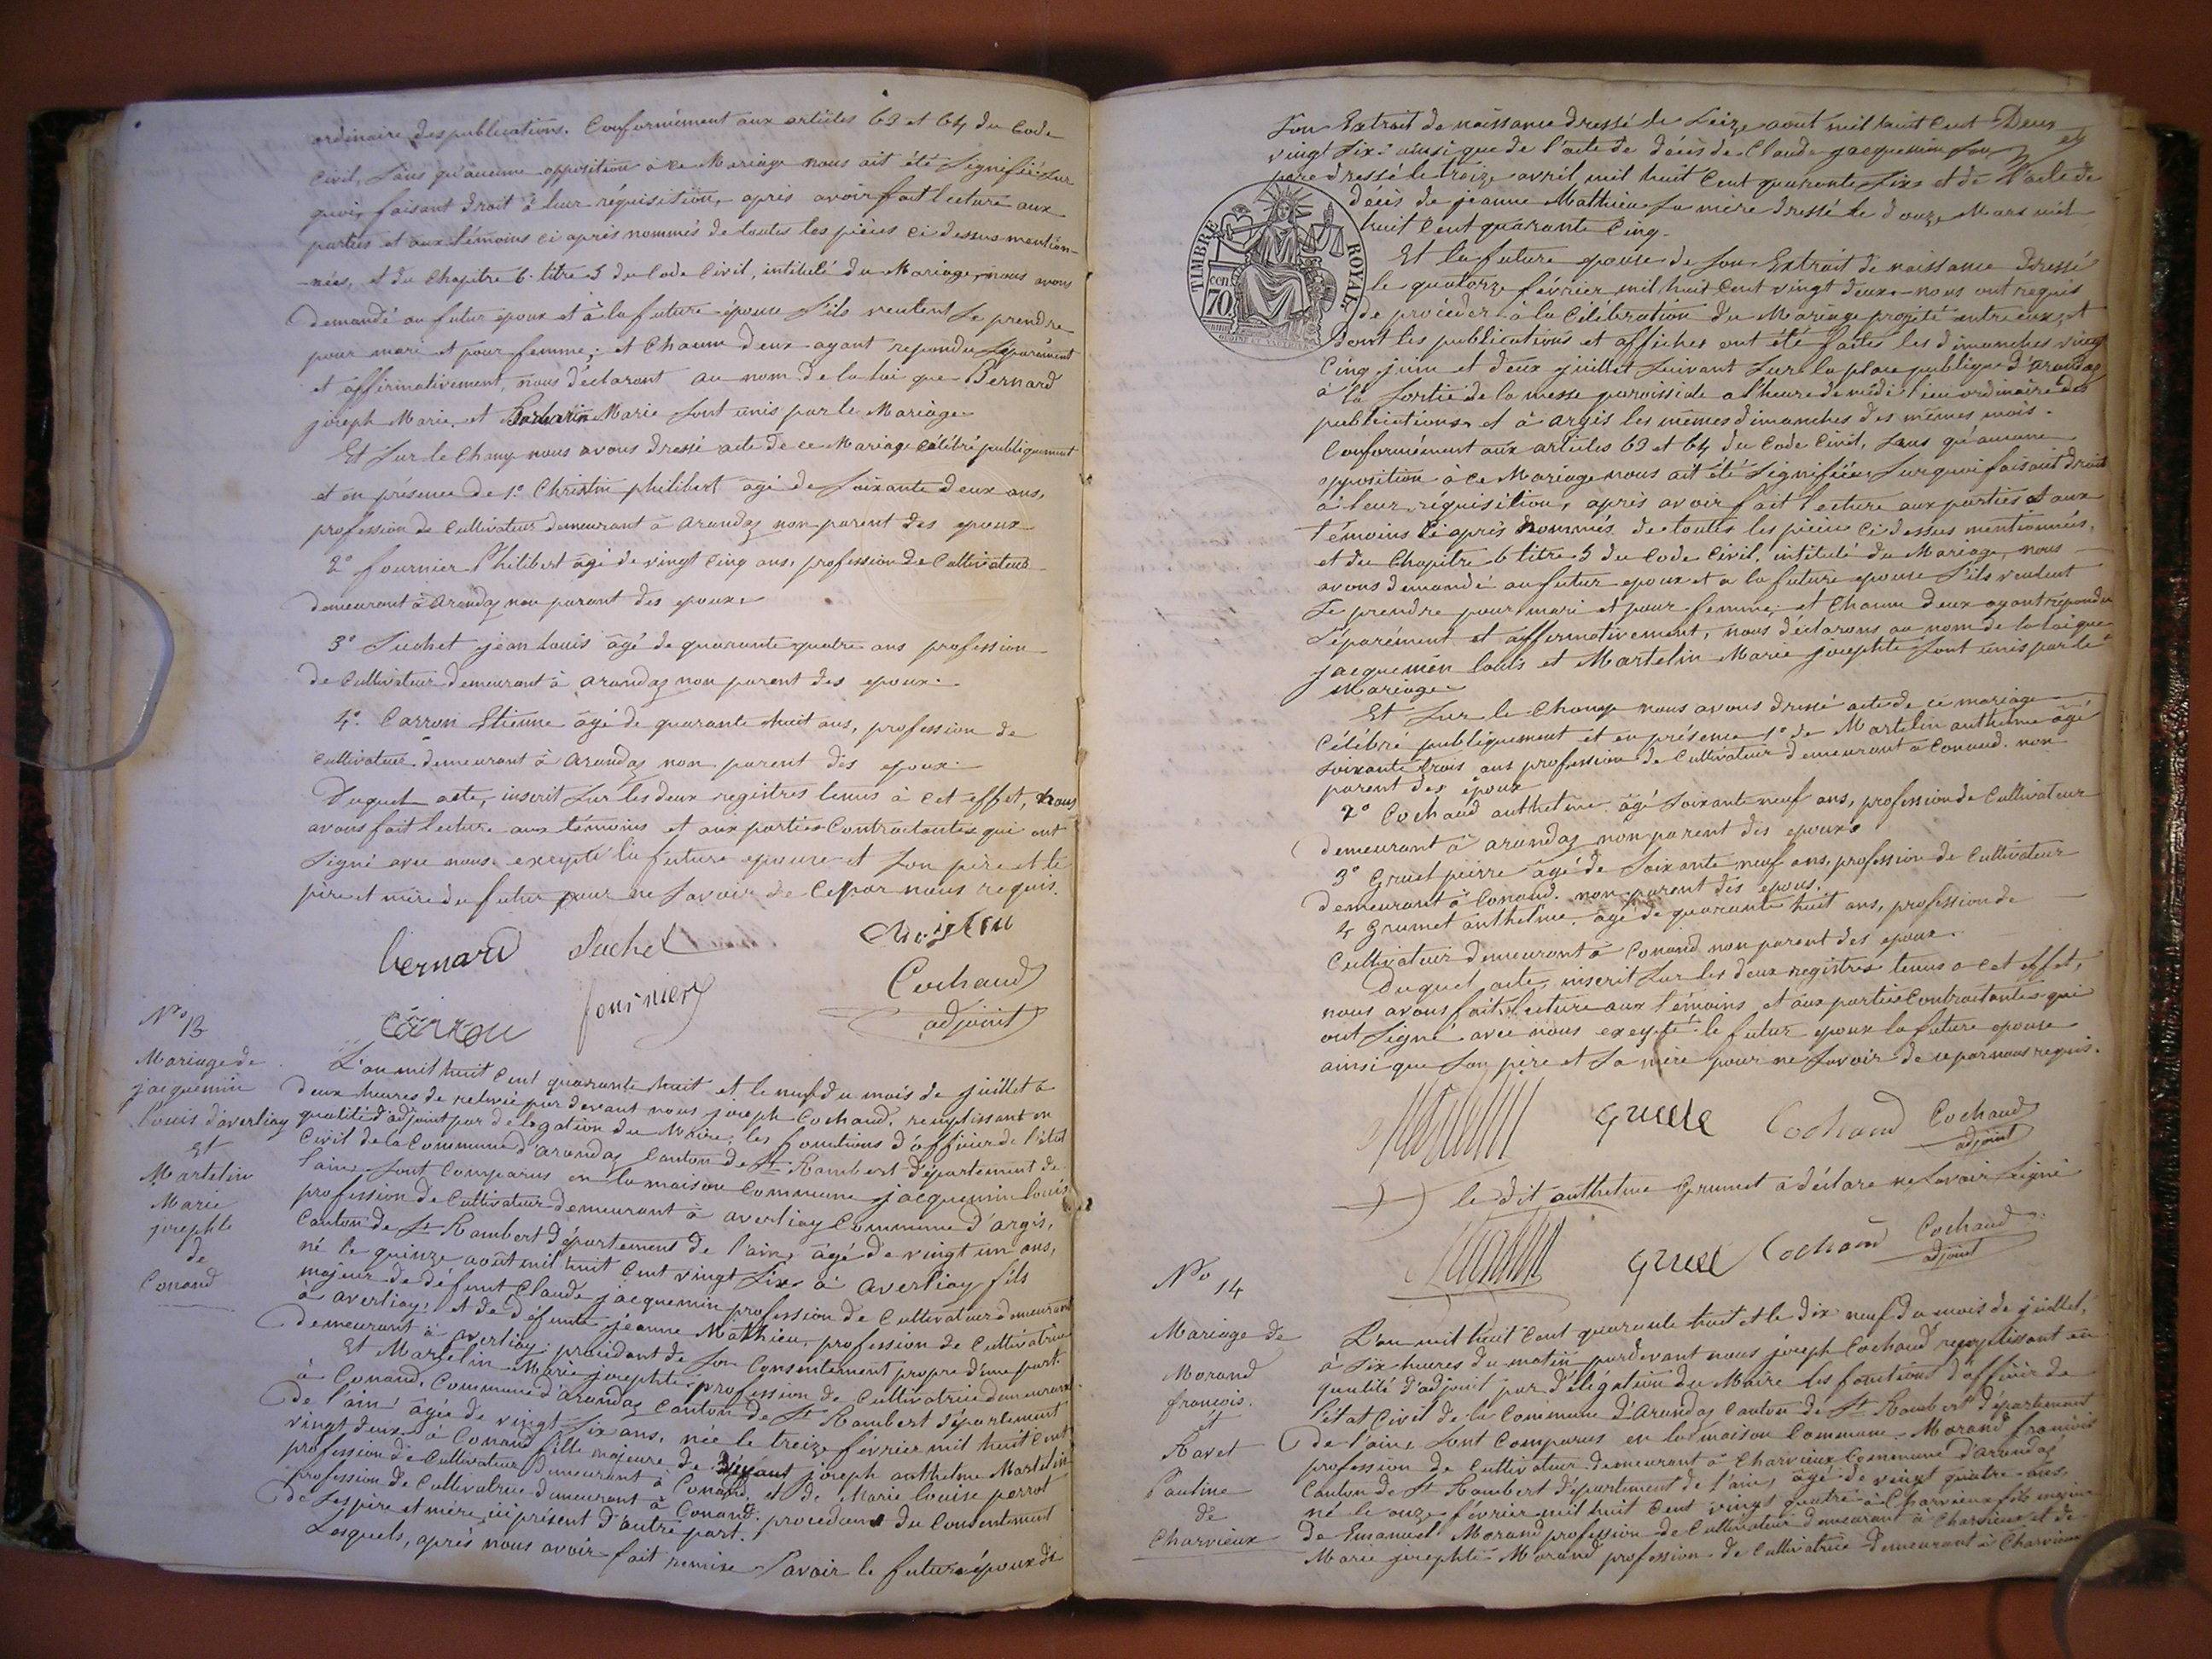 ordinaire des publications. Conformément aux articles 63 et 64 du Code
Civil, sans qu'aucune opposition à ce Mariage nous ait été signifiée sur
quoi, faisant droit à leur réquisition, après avoir fait lecture aux
parties et aux témoins ci après nommés de toutes les pièces ci dessus mention-
-nées, et du Chapitre 6. titre 5 du Code Civil, intitulé du Mariage, nous avons
demandé au futur époux et à la future épouse s'ils veulent se prendre
pour mari et pour femme; et Chacun d'eux ayant repondu séparément
et affirmativement, nous déclarons au nom de la loi que Bernard
joseph Marie, et Marie sont unis par le Mariage
Et sur le Champ nous avons dressé acte de ce Mariage célébré publiquement
et en présence de 1.º Christin philibert agé de soixante deux ans,
profession de Cultivateur demeurant à arandaz non parent des epoux
2º fournier Philibert âgé de vingt cinq ans, profession de Cultivateur
demeurant à arandaz non parent des epoux.
3º Suchet jean Louis âgé de quarante quatre ans profession
de Cultivateur demeurant à arandaz non parent des epoux.
4º. Carron Etienne âgé de quarante huit ans, profession de
Cultivateur demeurant à arandaz non parent des epoux.
Duquel acte, inscrit sur les deux registres tenus à cet effet, nous
avons fait lecture aux témoins et aux parties Contractantes qui ont
signé avec nous. excepté la future epouse et son père et le
père et mère du futur pour ne savoir de ce par nous requis.
bernard Suchet
Cochaud
Carron fournier adjoint
Nº 13
Mariage de
jacquemin
Louis d'averliay
Et
Martelin
Marie
josephte
de
Conand
L'an mil huit Cent quarante huit et le neuf du mois de juillet à
deux heures de relevée par devant nous joseph Cochaud, remplissant en
qualité d'adjoint par délégation du Maire, les fonctions d'officier de l'état
Civil de la Commune d'arandaz Canton de St Rambert département de
l'ain, sont Comparus en la maison Commune jacquemin Louis
profession de Cultivateur demeurant à averliay Commune d'argis,
Canton de St Rambert département de l'ain, âgé de vingt un ans,
né le quinze août mil huit Cent vingt six à averliay fils
majeur de défunt Claude jacquemin profession de Cultivateur demeurant
à averliay, et de défunte jeanne Mathieu, profession de Cultivatrice
demeurant à averliay; procédant de son Consentement propre d'une part.
Et Martelin Marie josephte profession de Cultivatrice demeurant
à Conand, Commune d'arandaz Canton de St Rambert département
de l'ain; agée de vingt six ans, née le treize février mil huit Cent
vingt deux à Conand fille majeure de joseph anthelme Martelin
profession de Cultivateur demeurant à Conand, et de Marie Louise perrot
profession de Cultivatrice demeurant à Conand. procédant du Consentement
de ses père et mère ici présent d'autre part.
Lesquels, après nous avoir fait remise Savoir le futur époux de
son Extrait de naissance dressé le seize août mil huit Cent Deux et
vingt six: ainsi que de l'acte de décès de Claude jacquemin son
père dressé le treize avril mil huit Cent quarante six et de l'acte de
décès de jeanne Mathieu sa mère dressé le douze Mars mil
huit Cent quarante Cinq.
TIMBRE ROYAL
70
Et la future epouse de son Extrait de naissance dressé
le quatorze février mil huit Cent vingt deux. nous ont requis
de procéder à la Célébration du Mariage projeté entre eux, et
dont les publications et affiches ont été faites les dimanches vingt
Cinq juin et deux juillet suivant sur la place publique d'arandaz
à la sortie de la messe paroissiale à l'heure de midi lieu ordinaire des
publications et à argis les mêmes dimanches des mêmes mois.
Conformément aux articles 63 et 64 du Code Civil, sans qu'aucune
opposition à ce Mariage nous ait été signifiée sur quoi faisant droit
à leur réquisition, après avoir fait lecture aux parties et aux
témoins ci après nommés de toutes les pièces ci dessus mentionnées,
et du Chapitre 6 titre 5 du Code Civil, intitulé du Mariage, nous
avons demandé au futur epoux et a la future epouse s'ils veulent
se prendre pour mari et pour femme; et Chacun d'eux ayant répondu
séparément et affirmativement, nous déclarons au nom de la loi que
jacquemin Louis et Martelin Marie josephte sont unis par le
Mariage
Et sur le Champ nous avons dressé acte de ce mariage
célébré publiquement et en présence 1º de Martelin anthelme âgé
soixante trois ans profession de Cultivateur demeurant à Conand. non
parent des époux
2º Cochaud anthelme âgé soixante neuf ans, profession de Cultivateur
demeurant à arandaz non parent des epoux.
3º Gruel pierre âgé de soixante neuf ans, profession de Cultivateur
demeurant à Conand. non parent des epoux.
4 Grumet anthelme, âgé de quarante huit ans, profession de
Cultivateur demeurant à Conand non parent des epoux.
Duquel acte, inscrit sur les deux registres tenus a cet effet,
nous avons fait lecture aux témoins et aux parties Contractantes qui
ont signé avec nous excepté le futur epoux la future epouse
ainsi que son père et sa mère pour ne savoir de ce par nous requis.
Cochaud Cochaud
adjoint
le dit anthelme Grumet a déclaré ne savoir signé
Gruel Cochaud Cochaud
adjoint
Nº 14
Mariage de
Morand
françois.
Et
Ravet
Pauline
de
Charvieux
L'an mil huit Cent quarante huit et le dix neuf du mois de juillet,
à six heures du matin pardevant nous joseph Cochaud remplissant en
qualité d'adjoint par délégation du Maire les fonctions d'officier de
l'état Civil de la Commune d'arandaz Canton de St Rambert département
de l'ain, sont Comparus en la maison Commune. Morand françois
profession de Cultivateur demeurant à Charvieux Commune d'arandaz
Canton de St Rambert département de l'ain, âgé de vingt quatre ans,
né le onze février mil huit Cent vingt quatre à Charvieux fils majeur
de Emanuel Morand profession de Cultivateur demeurant à Charvieux et de
Marie josephte Morand profession de Cultivatrice demeurant à Charvieux